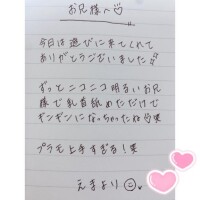 お兄様へ♡
今日は遊びに来てくれて
ありがとうございました
ずっとニコニコ明るいお兄
様で乳首舐めただけで
ギンギンになっちゃったね
プラモ上手すぎる!笑
えまより